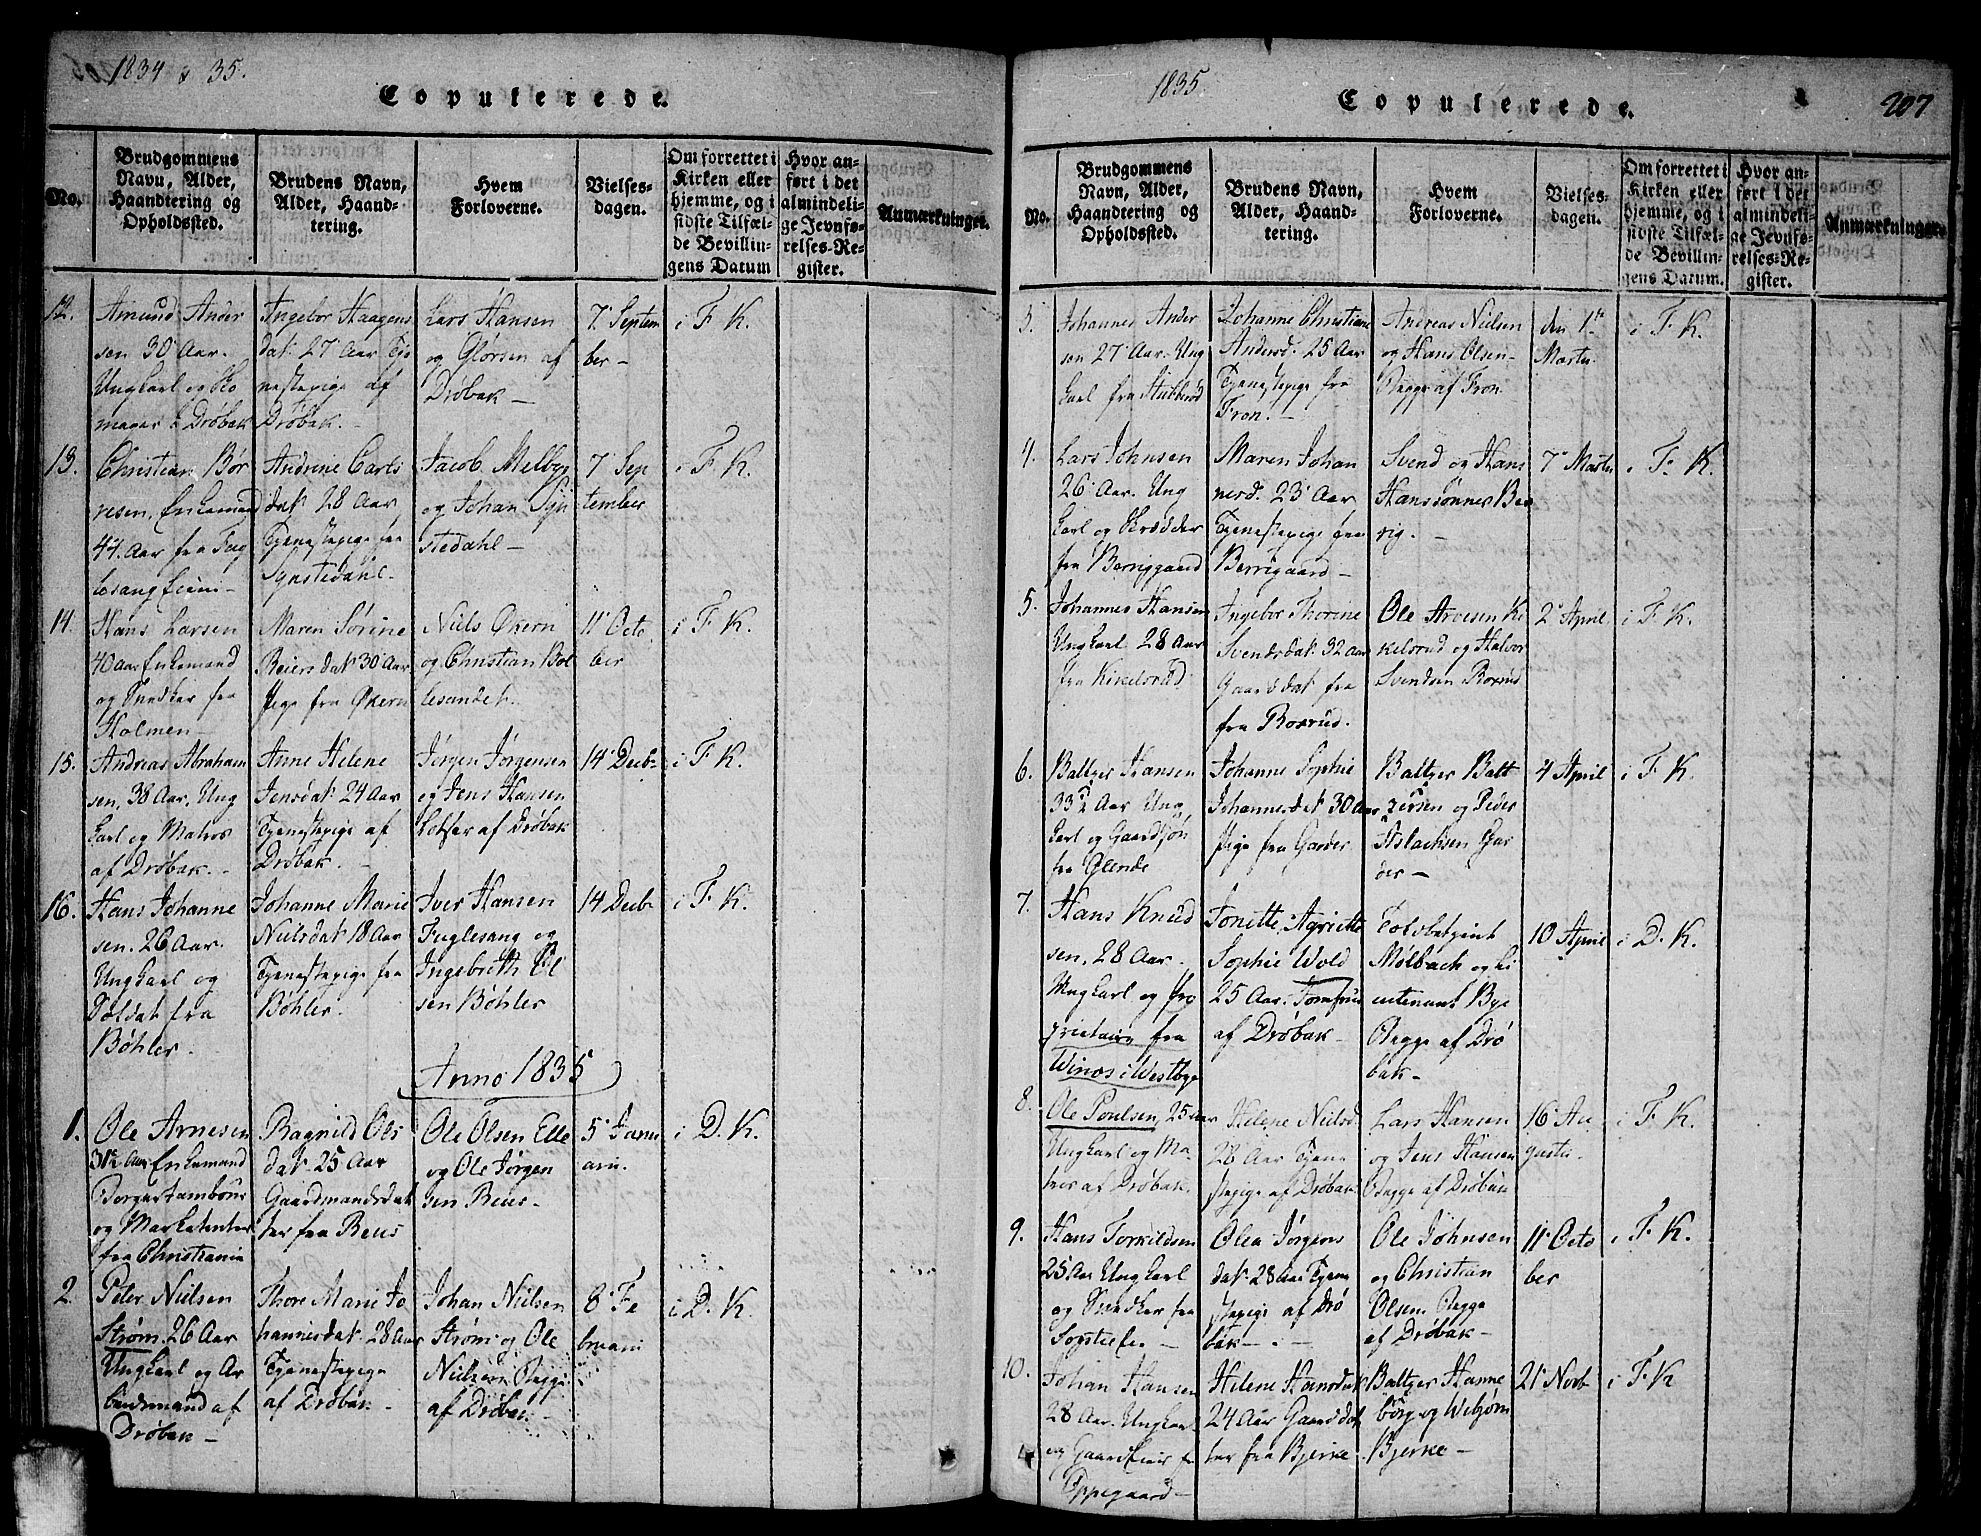 1834 & 35.
Copulerede.
No.
Brudgommens
Navn, Alder,
Haandtering og
Opholdssted.
Brudens Navn,
Alder, Haand-
tering.
Hvem
Forloverne.
Vielses-
dagen.
Om forrettet i
Kirken eller
hjemme, og i
sidste Tilfæl-
de Bevillin-
gens Datum
Hvor an-
ført i det
almindeli-
ge Jevnfø-
relses-Re-
gister.
Anmærkninger.
12.
Amund Ander
sen 30 Aar.
Ungkarl og Sko
mager i Drøbak
Ingebor Haagens
dat: 27 Aar Tje
nestepige af
Drøbak.
Lars Hansen
og Glørsen af
Drøbak
7 Septem
ber
i F. K.
13.
Christian Bør
resen, Enkemand
44. Aar fra Fug
lesang Eiein
Andrine Carls
dat: 28 Aar
Tjenestepige fra
Synstedahl.
Jacob Melbye
og Johan Syn
stedahl
7 Sep
tember
i F. K.
14.
Hans Larsen
40 aar Enkemand
og Snedker fra
Holmen
Maren Sørine
Beiersdat: 30 Aar
Pige fra Økern
Niels Økern
og Christian Bol
lesandet.
11 Octo
ber
i F. K.
15.
Andreas Abraham
sen, 38 Aar, Ung
karl og Matros
af Drøbak.
Anne Helene
Jensdat: 24 Aar
Tjenestepige af
Drøbak.
Jørgen Jørgensen
og Jens Hansen
Lodser af Drøbak
14 Decb
i F. K.
16.
Hans Johanne
sen. 26 Aar.
Ungkarl og
Soldat fra
Bøhler.
Johanne Marie
Nielsdat 18 Aar
Tjenestepige fra
Bøhler.
Iver Hansen
Fuglesang og
Ingebreth Ol
sen Bøhler
14 Decb
i F. K.
Anno 1835
1.
Ole Arnesen
31½ Aar Enkemand
Borger tambour
og Marketenter
fra Christiania
Ragnild Ols
dat. 25 Aar
Gaardmandsdat
ter fra Reus
Ole Olsen Elle
og Ole Jørgen
sen Reus
5 Janu
arii.
i D. K.
2.
Peter Nielsen
Strøm. 26 Aar
Ungkarl og Ar
beidsmand af
Drøbak
Thore Marie Jo
hannesdat. 28 Aar
Tjenestepige
af Drøbak
Johan Nielsen
Strøm og Ole
Nielsen Begge
af Drøbak
8 Fe
bruarii
i D. K.
1835
Copulerede.
207
No.
Brudgommens
Navn, Alder,
Haandtering og
Opholdssted.
Brudens Navn,
Alder, Haand-
tering.
Hvem
Forloverne.
Vielses-
dagen.
Om forrettet i
Kirken eller
hjemme, og i
sidste Tilfæl-
de Bevillin-
gens Datum.
Hvor an-
ført i det
almindeli-
ge Jevnfø-
relses-Re-
gister.
Anmærkninger.
3.
Johannes Ander
sen 27 Aar. Ung
karl fra Stubberud
Johanne Christiane
Andersd. 25 Aar
Tjenestepige fra
Fron.
Andreas Nielsen
og Hans Olsen
Begge af Fron
den 1ste
Martii
i F. K.
4.
Lars Johnsen
26 Aar. Ung
karl og Skrædder
fra Berriggaard
Maren Johan
nesd. 23 Aar
Tjenestepige fra
Berrigaard
Svend og Hans
Hanssønner Ber
rig.
7 Martii
i F. K.
5.
Johannes Hansen
Ungkarl 28 Aar
fra Kikelsrud
Ingebor Thorine
Svendsdat. 32 aar
Gaardsdat fra
fra Roxrud.
Ole Arvesen Ki
kelsrud og Halvor
Svendsen Roxrud
2 April
i F. K.
6.
Baltzer Hansen
33½ Aar Ung
karl og Gaardsøn
fra Glende
Johanne Sophie
Johannesdat 30 Aar
Pige fra Garder
Baltzer Balt
zersen og Peder
Aslachsen Gar
der
4 April
i F. K.
7.
Hans Knud
sen, 28 Aar.
Ungkarl og Pro
prietaire fra
Winos i Westbye
Jonette Agriette
Sophie Wold
25 Aar. Jomfrue
af Drøbak
Toldbetjent
Mølbach og Li
eutenant Bye
Begge af Drø
bak
10 April
i D. K.
8.
Ole Poulsen, 25 aar
Ungkarl og Ma
tros af Drøbak.
Helene Nielsd.
28 Aar Tjene
stepige af Drøbak
Lars Hansen
og Jens Hansen
Begge af Drøbak
16 Au
gusti
i F. K.
9.
Hans Torkildsen
25 Aar Ungkarl
og Snedker fra
Sogstiefen
Olea Jørgens
dat. 28 Aar Tjene
stepige af Drø
bak
Ole Johnsen
og Christian
Olsen. Begge
af Drøbak
11 Octo
ber
i F. K.
10.
Johan Hansen
28 Aar. Ungkarl
og Gaardeier fra
Oppegaard
Helene Hansdat
24 Aar Gaardsdat
ter fra Bjerke
Baltzer Hanne
borg og Webjørn
Bjerke
21 Novb
i F. K